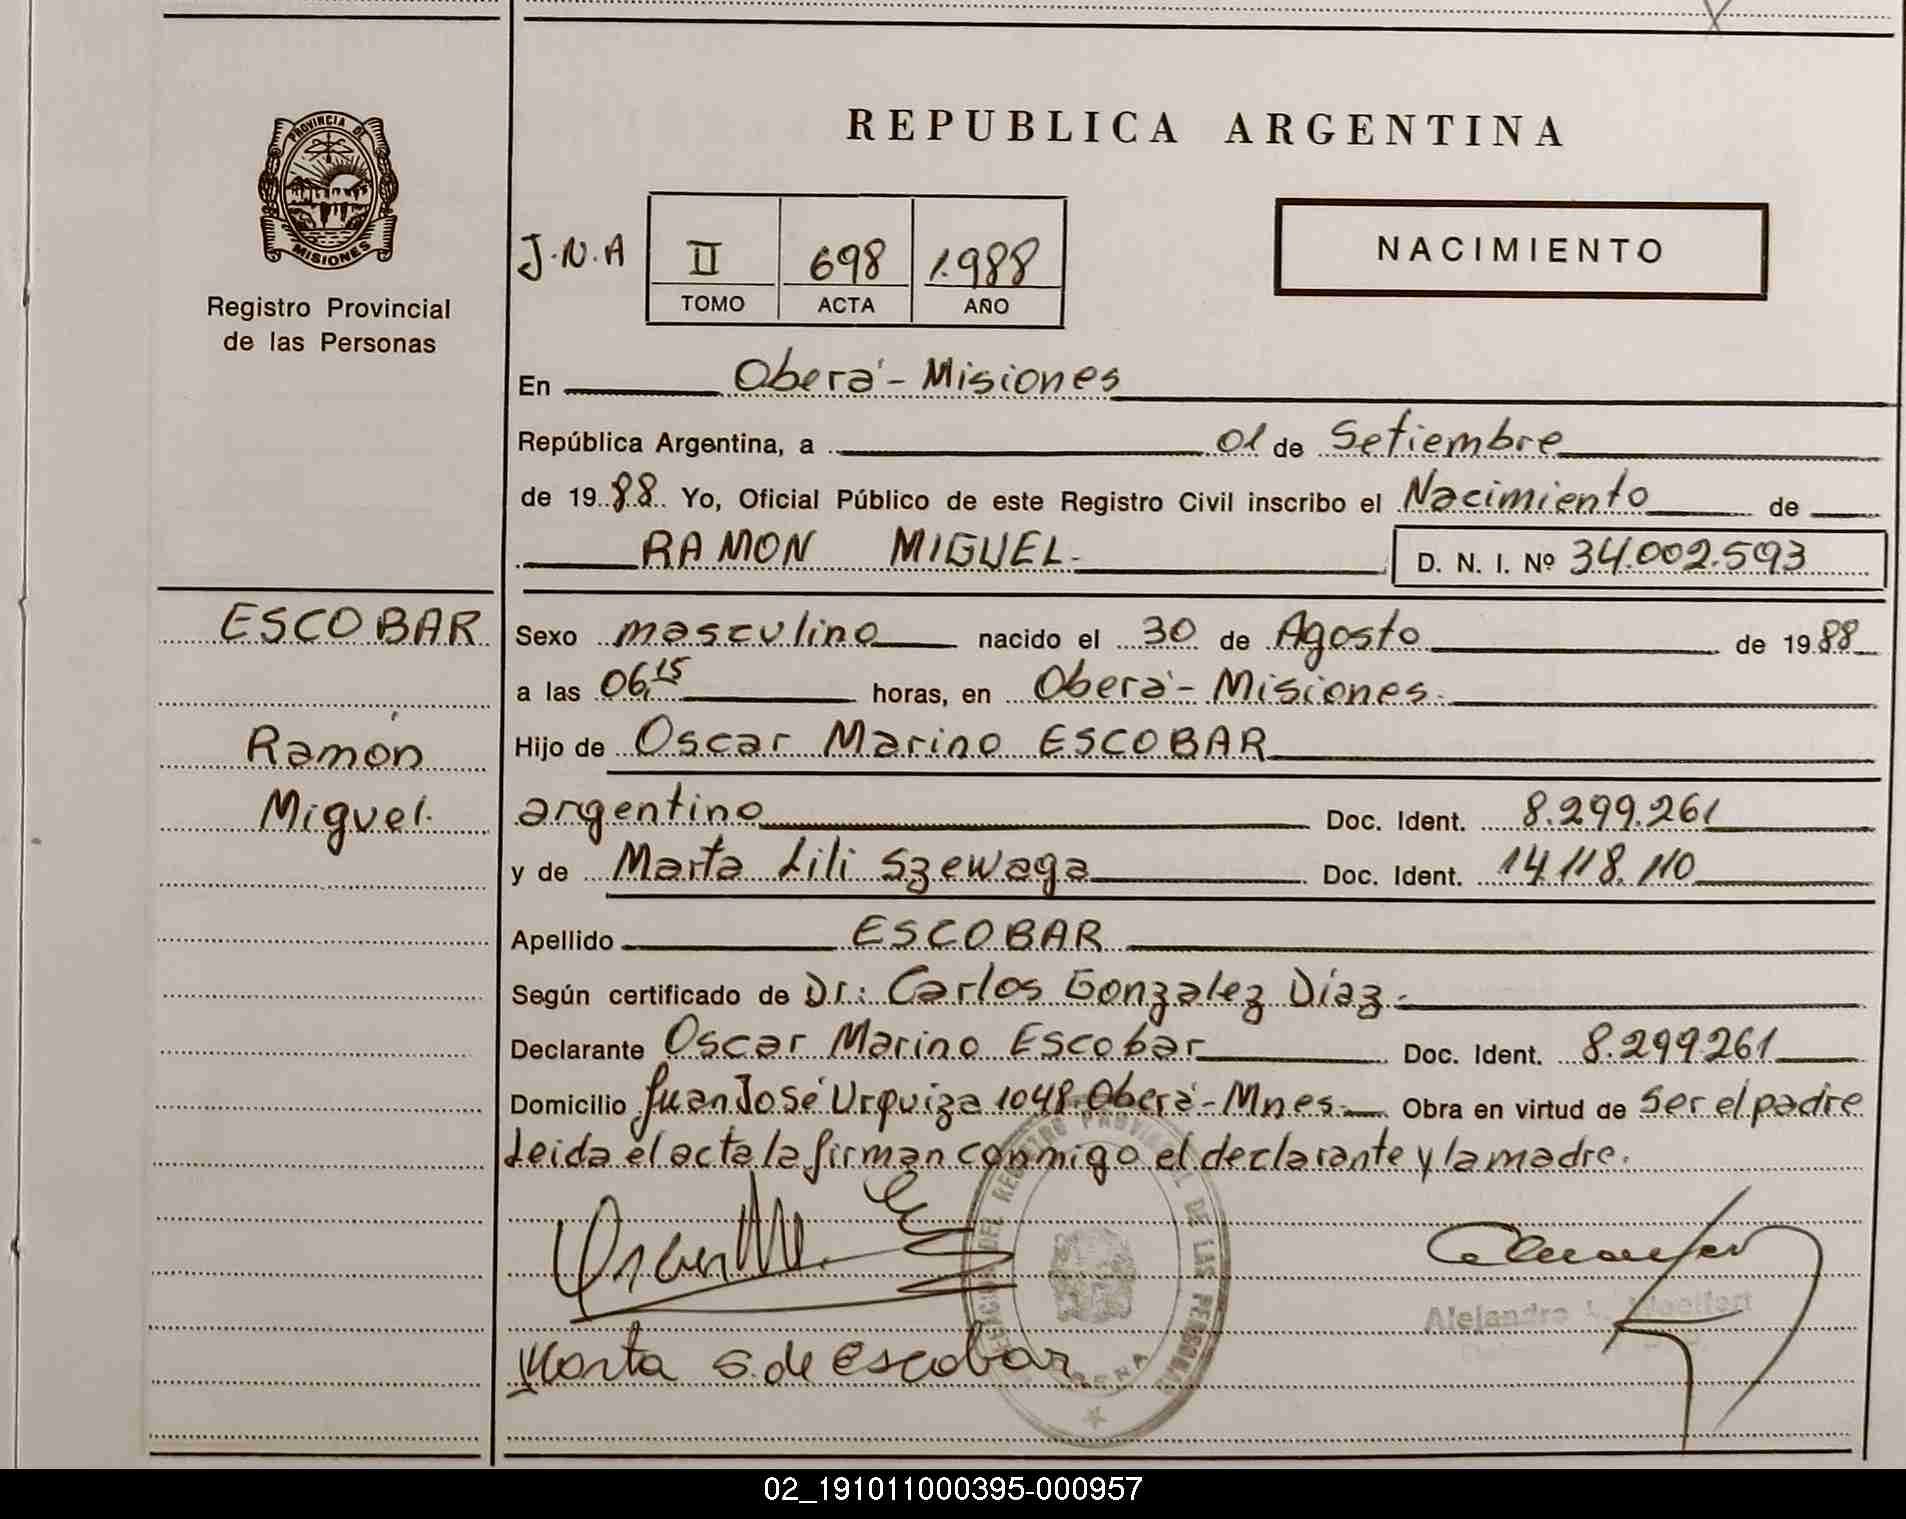 REPUBLICA ARGENTINA
PROVINCIA DE MISIONES
Registro Provincial
de las Personas
J.N.A II 698 1.988
TOMO ACTA AÑO
NACIMIENTO
En Oberá - Misiones
República Argentina, a 01 de Setiembre
de 19 88 Yo, Oficial Público de este Registro Civil inscribo el Nacimiento de
RAMON MIGUEL.
D. N. I. Nº 34.002.593
ESCOBAR
Ramón
Miguel.
Sexo masculino nacido el 30 de Agosto de 19 88
a las 06,15 horas, en Oberá - Misiones.
Hijo de Oscar Marino ESCOBAR
argentino Doc. Ident. 8.299.261
y de Marta Lili Szewaga Doc. Ident. 14.118.110
Apellido ESCOBAR
Según certificado de Dr.: Carlos Gonzalez Díaz.
Declarante Oscar Marino Escobar Doc. Ident. 8.299.261
Domicilio Juan José Urquiza 1048. Oberá - Mnes. Obra en virtud de Ser el padre
Leida el acta la firman conmigo el declarante y la madre.
DEL REGISTRO PROVINCIAL DE LAS PERSONAS
OBERA
Alejandro
Marta S. de Escobar
02_191011000395-000957